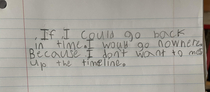 . If I could go back
in time. I would go nowhere
Because I don't want to mes
up the timeline.